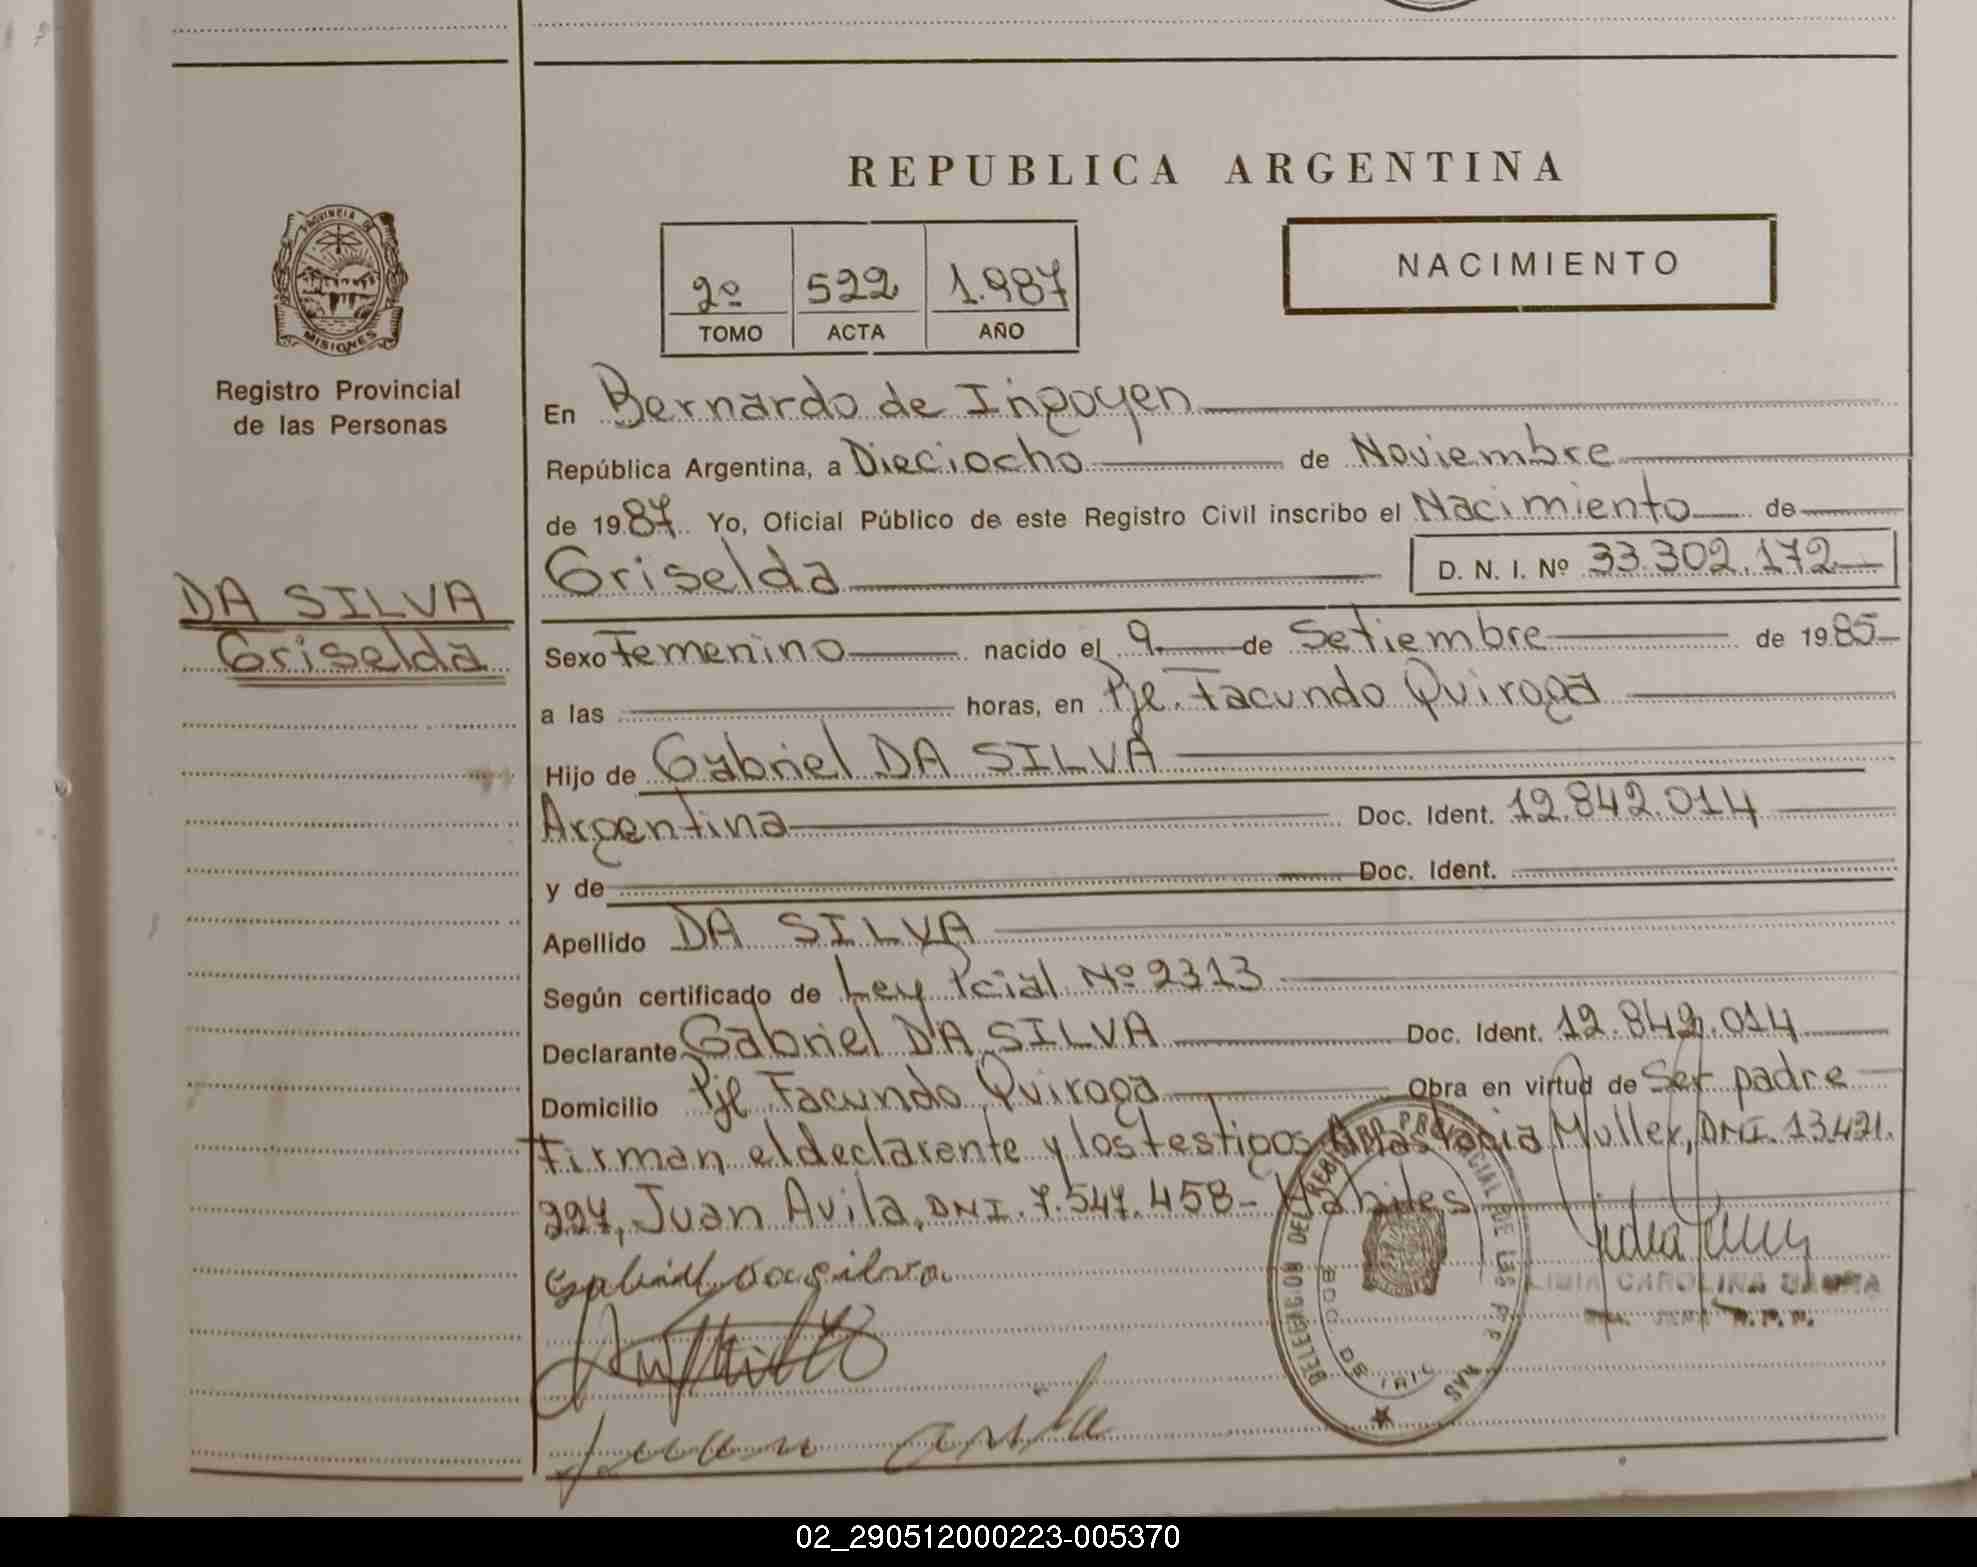 REPUBLICA ARGENTINA
PROVINCIA DE
MISIONES
Registro Provincial
de las Personas
2º 522 1.987
TOMO ACTA AÑO
NACIMIENTO
DA SILVA
Griselda
En Bernardo de Irigoyen
República Argentina, a Dieciocho de Noviembre
de 1987 Yo, Oficial Público de este Registro Civil inscribo el Nacimiento de
Griselda D. N. I. Nº 33.302.172
Sexo Femenino nacido el 9 de Setiembre de 1985
a las horas, en Pje. Facundo Quiroga
Hijo de Gabriel DA SILVA
Argentina Doc. Ident. 12.842.014
y de Doc. Ident.
Apellido DA SILVA
Según certificado de Ley Pcial Nº 2313
Declarante Gabriel DA SILVA Doc. Ident. 12.842.014
Domicilio Pje Facundo Quiroga Obra en virtud de Ser padre
Firman el declarente y los testigos Anastacia Muller, DNI. 13.421.
227, Juan Avila, DNI. 7.547.458- Habiles
Gabriel da silva
Juan avila
DELEGACION DEL REGISTRO PROVINCIAL DE LAS
BDO. DE IRIG
CAROLINA
02_290512000223-005370